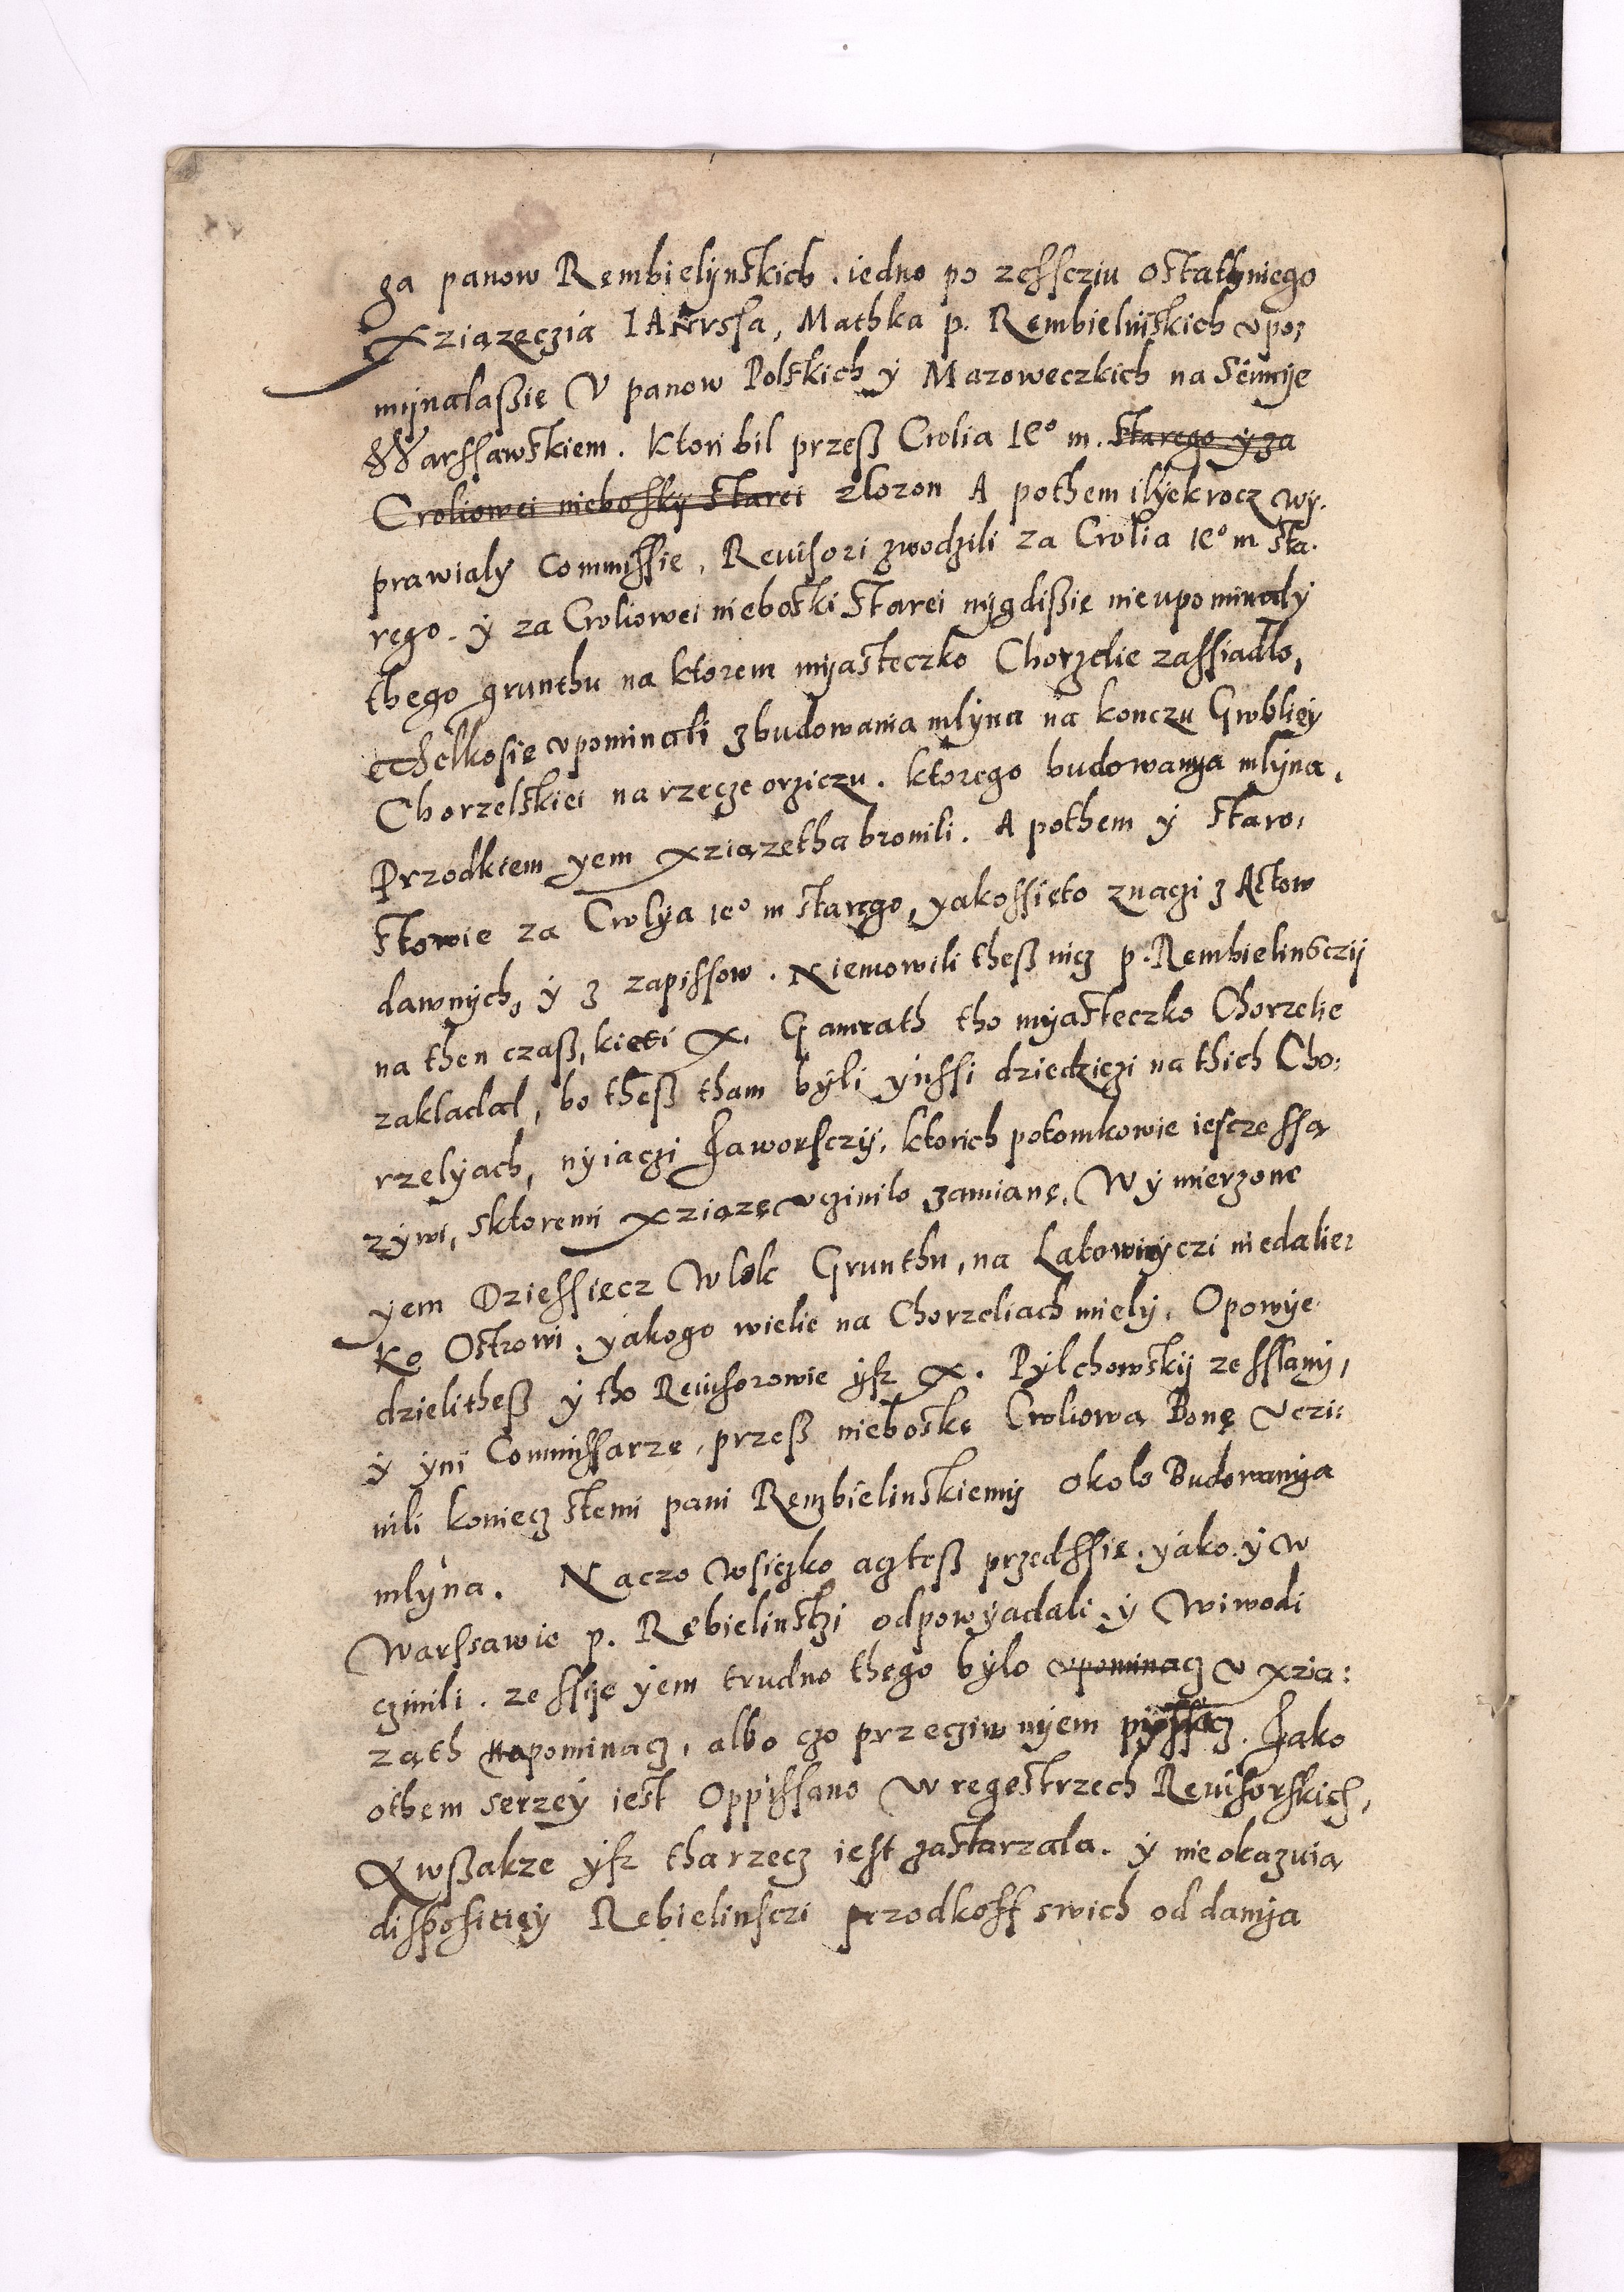 ga panow Rembielÿnskich. iedno po zesscziu ostathniego
Xziązęczia IANvssa, Mathka p. Rembielinskich vpo:
mÿnalaßię V panow Polskich ÿ Mazoweczkich na Seimÿe
Warssawskiem. Ktori bil przeß Crolia Ie° m. starego ÿ za
Croliowei niebosky starei zlozon A pothem ilÿekrocz wÿ:
prawialÿ Commissie, Reuisori zwodzili za Crolia Ie° m sta:
rego. ÿ za Croliowei nieboski starei nÿgdißię nieupominalÿ
thego grunthu na ktorem mÿasteczko Chorzelie zassiadlo,
Thelkosię vpominali zbudowania mlÿna na konczu Grobliеÿ
Chorzelskiei na rzecze orziczu. ktorego budowanÿa mlÿna,
Przodkiem ÿem Xziązętha bronili. A pothem ÿ staro:
stowie za Crolÿa Ie° m starego, ÿakossięto znaczi z Actow
dawnÿch, ÿ z zapissow. Niemowili theß nicz p. Rembielinsczÿ
na then czaß, kieti X. Gamrath tho mÿasteczko Chorzelie
zakladal, bo theß tham bÿli ÿnssi dziedziczi na thich Cho:
rzelÿach, nÿiaczi Jaworsczÿ, ktorich potomkowie iescze ssą
zÿwi, sktoremi Xziązę vczinilo zamianę, Wÿmierzone
ÿem Dziessięcz Wlok Grunthu, na Latowiczi niedalie:
ko Ostrowi. ÿakogo wielie na Chorzeliach mielÿ. Opowÿe
dzielitheß ÿ tho Reuisorowie ÿsz X. Pÿlchowskÿ zesslanÿ,
ÿ ÿni Commissarze, przeß nieboskę Croliowa Bonę vczi:
nili koniecz stemi pani Rembielinskiemÿ około Budowanÿa
mlÿna. Naczo wsiczko aczteß przedssię ÿako ÿ w
Warssawie p. Rębielinsczi odpowÿadali ÿ Wiwodi
czinili. ze ssię ÿem trudno thego bÿlo vpominacz v xzią:
ząth napominacz, albo czo przecziw nÿem pÿssacz. Jako
othem serzeÿ iest Oppissano w regestrzech Reuisorskich,
A wßakze ÿsz tha rzecz iest zastarzala. ÿ nie okazuią
dispositieÿ Rębielinsczi przodkoff swich oddanÿa